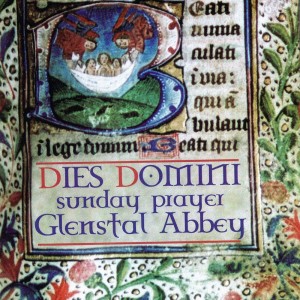 Eati
inima
culati
i uia:
qui a
bulant
i lege domini Eati qui
DIES DOMINI
sunday prayer
Glenstal Abbey